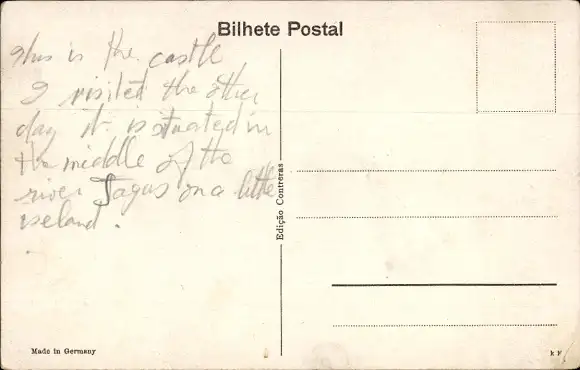 Bilhete Postal
This is the castle
I visited the other
day it is situated in
the middle of the
river Tagus on a little
iseland.
Edição Contreras
Made in Germany